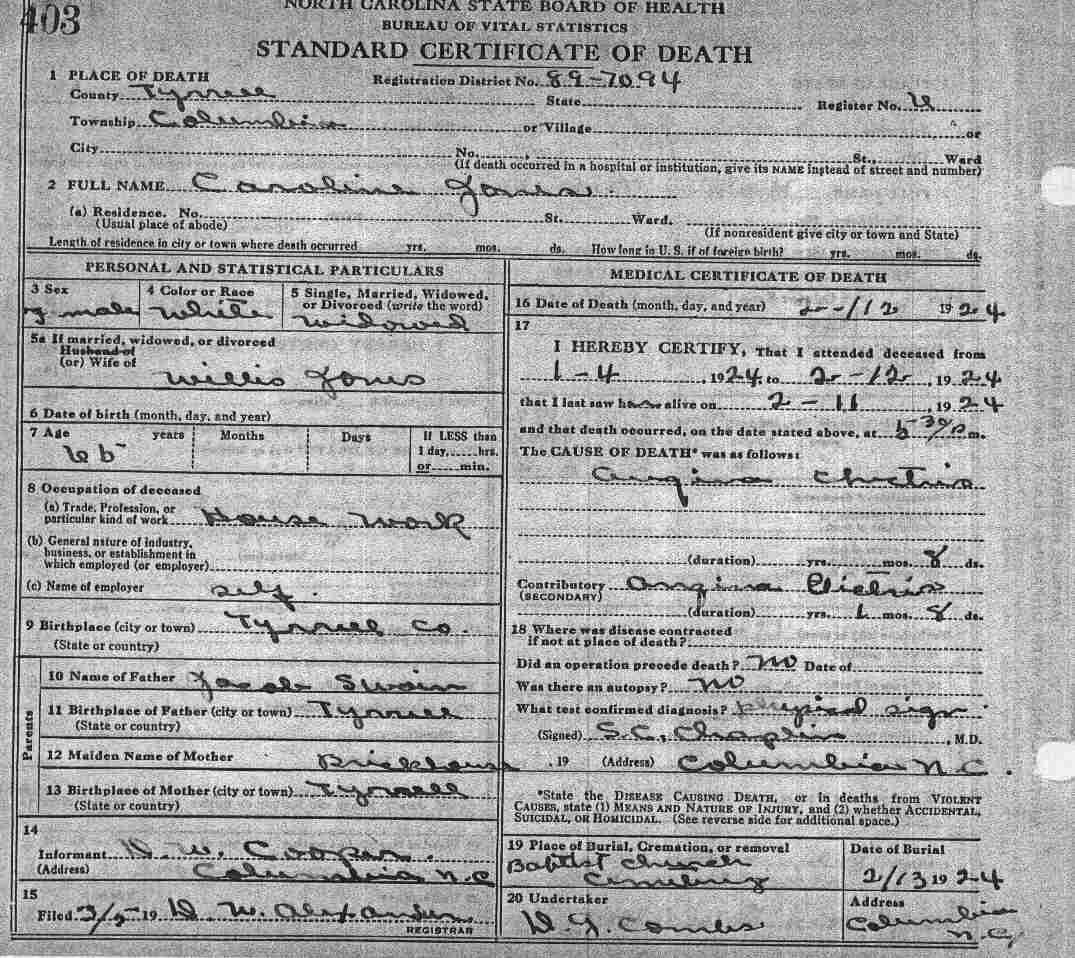 403
NORTH CAROLINA STATE BOARD OF HEALTH
BUREAU OF VITAL STATISTICS
STANDARD CERTIFICATE OF DEATH
1 PLACE OF DEATH Registration District No. 89-7094
County Tyrrell State Register No.
Township Columbia or Village or
City No. , St., Ward
(If death occurred in a hospital or institution, give its NAME instead of street and number)
2 FULL NAME Caroline Jones
(a) Residence. No. St. Ward.
(Usual place of abode) (If nonresident give city or town and State)
Length of residence in city or town where death occurred yrs. mos. ds. How long in U. S. if of foreign birth? yrs. mos. ds.
PERSONAL AND STATISTICAL PARTICULARS
3 Sex 4 Color or Race 5 Single, Married, Widowed, or Divorced (write the word)
male White Widowed
5a If married, widowed, or divorced
Husband of
(or) Wife of
Willis Jones
6 Date of birth (month, day, and year)
7 Age years Months Days If LESS than
1 day, hrs.
or min.
8 Occupation of deceased
(a) Trade, Profession, or
particular kind of work House Work
(b) General nature of industry,
business, or establishment in
which employed (or employer)
(c) Name of employer self.
9 Birthplace (city or town) Tyrrell Co.
(State or country)
Parents
10 Name of Father Jacob Swain
11 Birthplace of Father (city or town) Tyrrell
(State or country)
12 Maiden Name of Mother Brickhouse
13 Birthplace of Mother (city or town) Tyrrell
(State or country)
14
Informant W. Cooper.
(Address) Columbia N.C
15
Filed 3/5 19 W. Alexander
REGISTRAR
MEDICAL CERTIFICATE OF DEATH
16 Date of Death (month, day, and year) 2-/12 1924
17
I HEREBY CERTIFY, That I attended deceased from
1-4, 1924 to 2-12, 1924
that I last saw alive on 2-11, 1924
and that death occurred, on the date stated above, at 5 30/P m.
The CAUSE OF DEATH* was as follows:
Angina
(duration) yrs. mos. 8 ds.
Contributory Angina
(SECONDARY)
(duration) yrs. 1 mos. 8 ds.
18 Where was disease contracted
if not at place of death?
Did an operation precede death? No Date of
Was there an autopsy? No
What test confirmed diagnosis? physical sign
(Signed) S.C. Chaplin, M.D.
, 19 (Address) Columbia N.C.
*State the DISEASE CAUSING DEATH, or in deaths from VIOLENT
CAUSES, state (1) MEANS AND NATURE OF INJURY, and (2) whether ACCIDENTAL,
SUICIDAL, OR HOMICIDAL. (See reverse side for additional space.)
19 Place of Burial, Cremation, or removal Date of Burial
Baptist Church
Cemetery 2/13 1924
20 Undertaker Address
Combs Columbia
N.C,